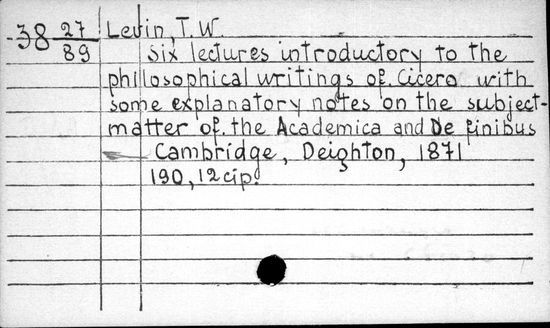 38 27/89 Levin, T. W.
Six lectures introductory to the
philosophical writings of Cicero with
some explanatory notes on the subject-
matter of the Academica and De finibus
Cambridge, Deighton, 1871
190, 12 с ір.